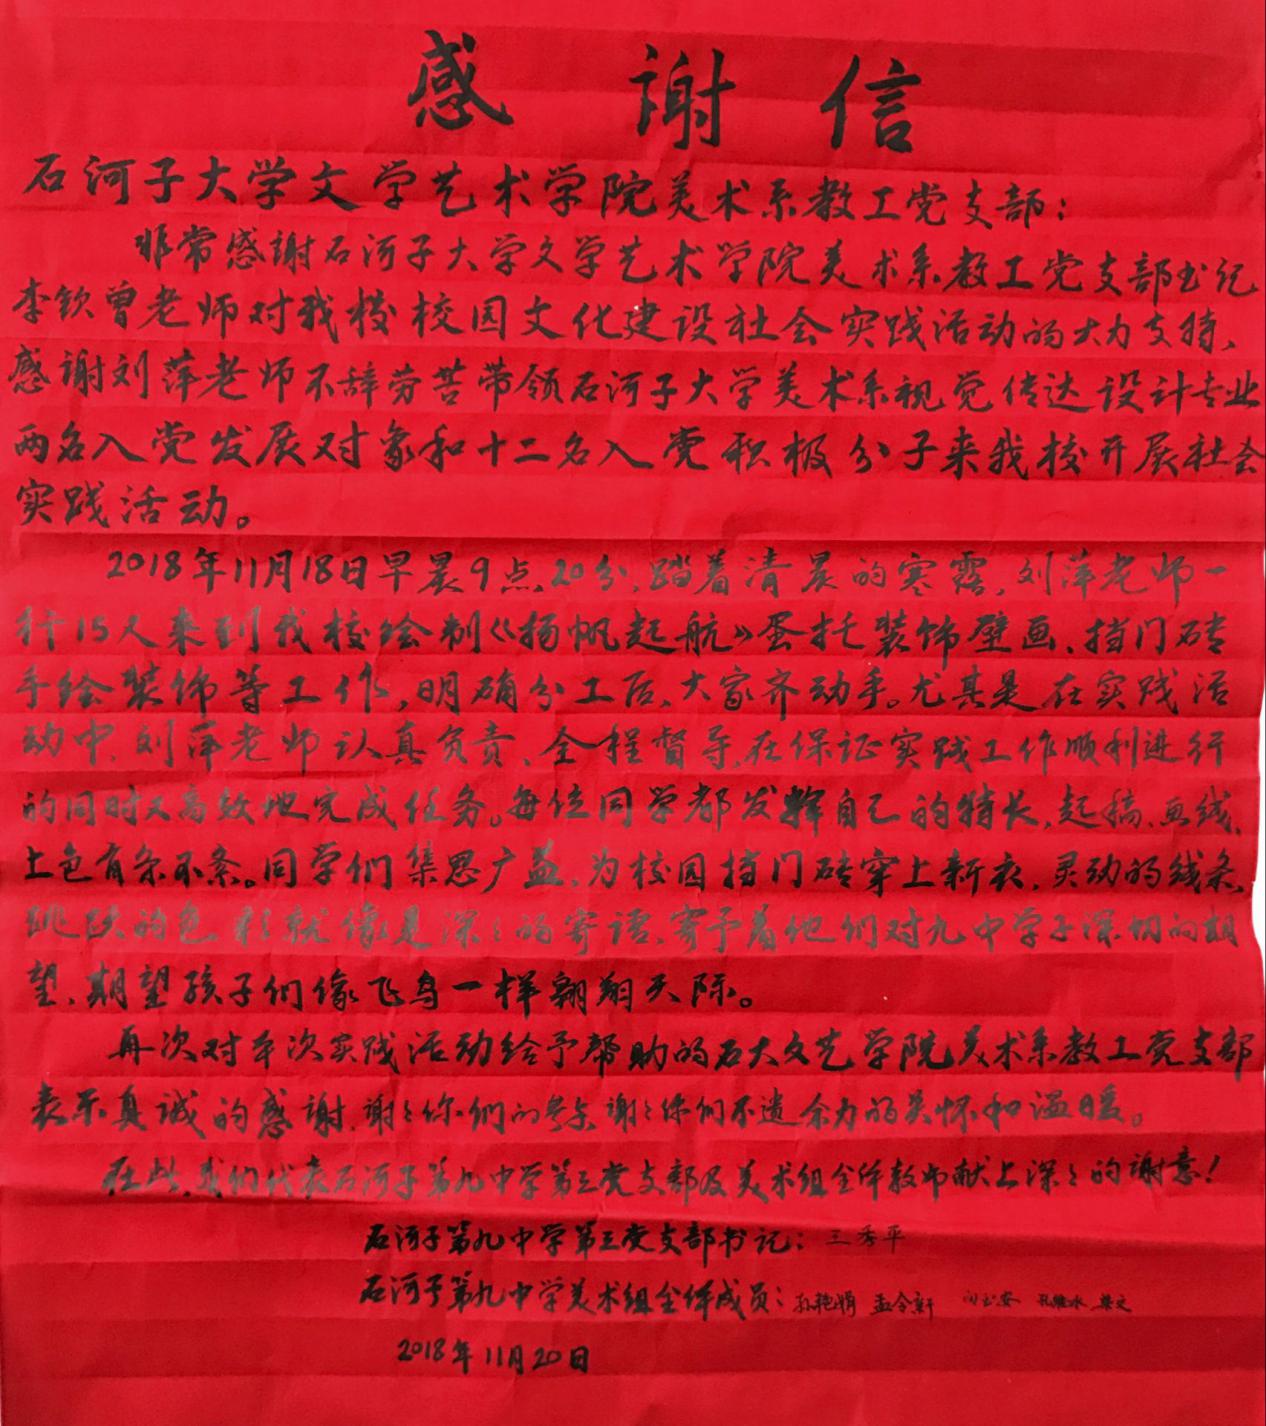 感谢信
石河子大学文学艺术学院美术系教工党支部：
非常感谢石河子大学文学艺术学院美术系教工党支部书记
李钦曾老师对我校校园文化建设社会实践活动的大力支持，
感谢刘萍老师不辞劳苦带领石河子大学美术系视觉传达设计专业
两名入党发展对象和十二名入党积极分子来我校开展社会
实践活动。
2018年11月18日早晨9点20分，踏着清晨的寒露，刘萍老师一
行15人来到我校绘制《扬帆起航》蛋托装饰壁画、挡门砖
手绘装饰等工作，明确分工后，大家齐动手。尤其是在实践活
动中，刘萍老师认真负责、全程督导，在保证实践工作顺利进行
的同时又高效地完成任务。每位同学都发挥自己的特长，起稿、画线、
上色有条不紊。同学们集思广益，为校园挡门砖穿上新衣，灵动的线条，
跳跃的色彩就像是深深的寄语，寄予着他们对九中学子深切的期
望，期望孩子们像飞鸟一样翱翔天际。
再次对本次实践活动给予帮助的石大文艺学院美术系教工党支部
表示真诚的感谢，谢谢你们的 谢谢你们不遗余力的关怀和温暖。
在此，我们代表石河子第九中学第三党支部及美术组全体教师献上深深的谢意！
石河子第九中学第三党支部书记：秀平
石河子第九中学美术组全体成员：孙艳娟 孟令新
2018年11月20日